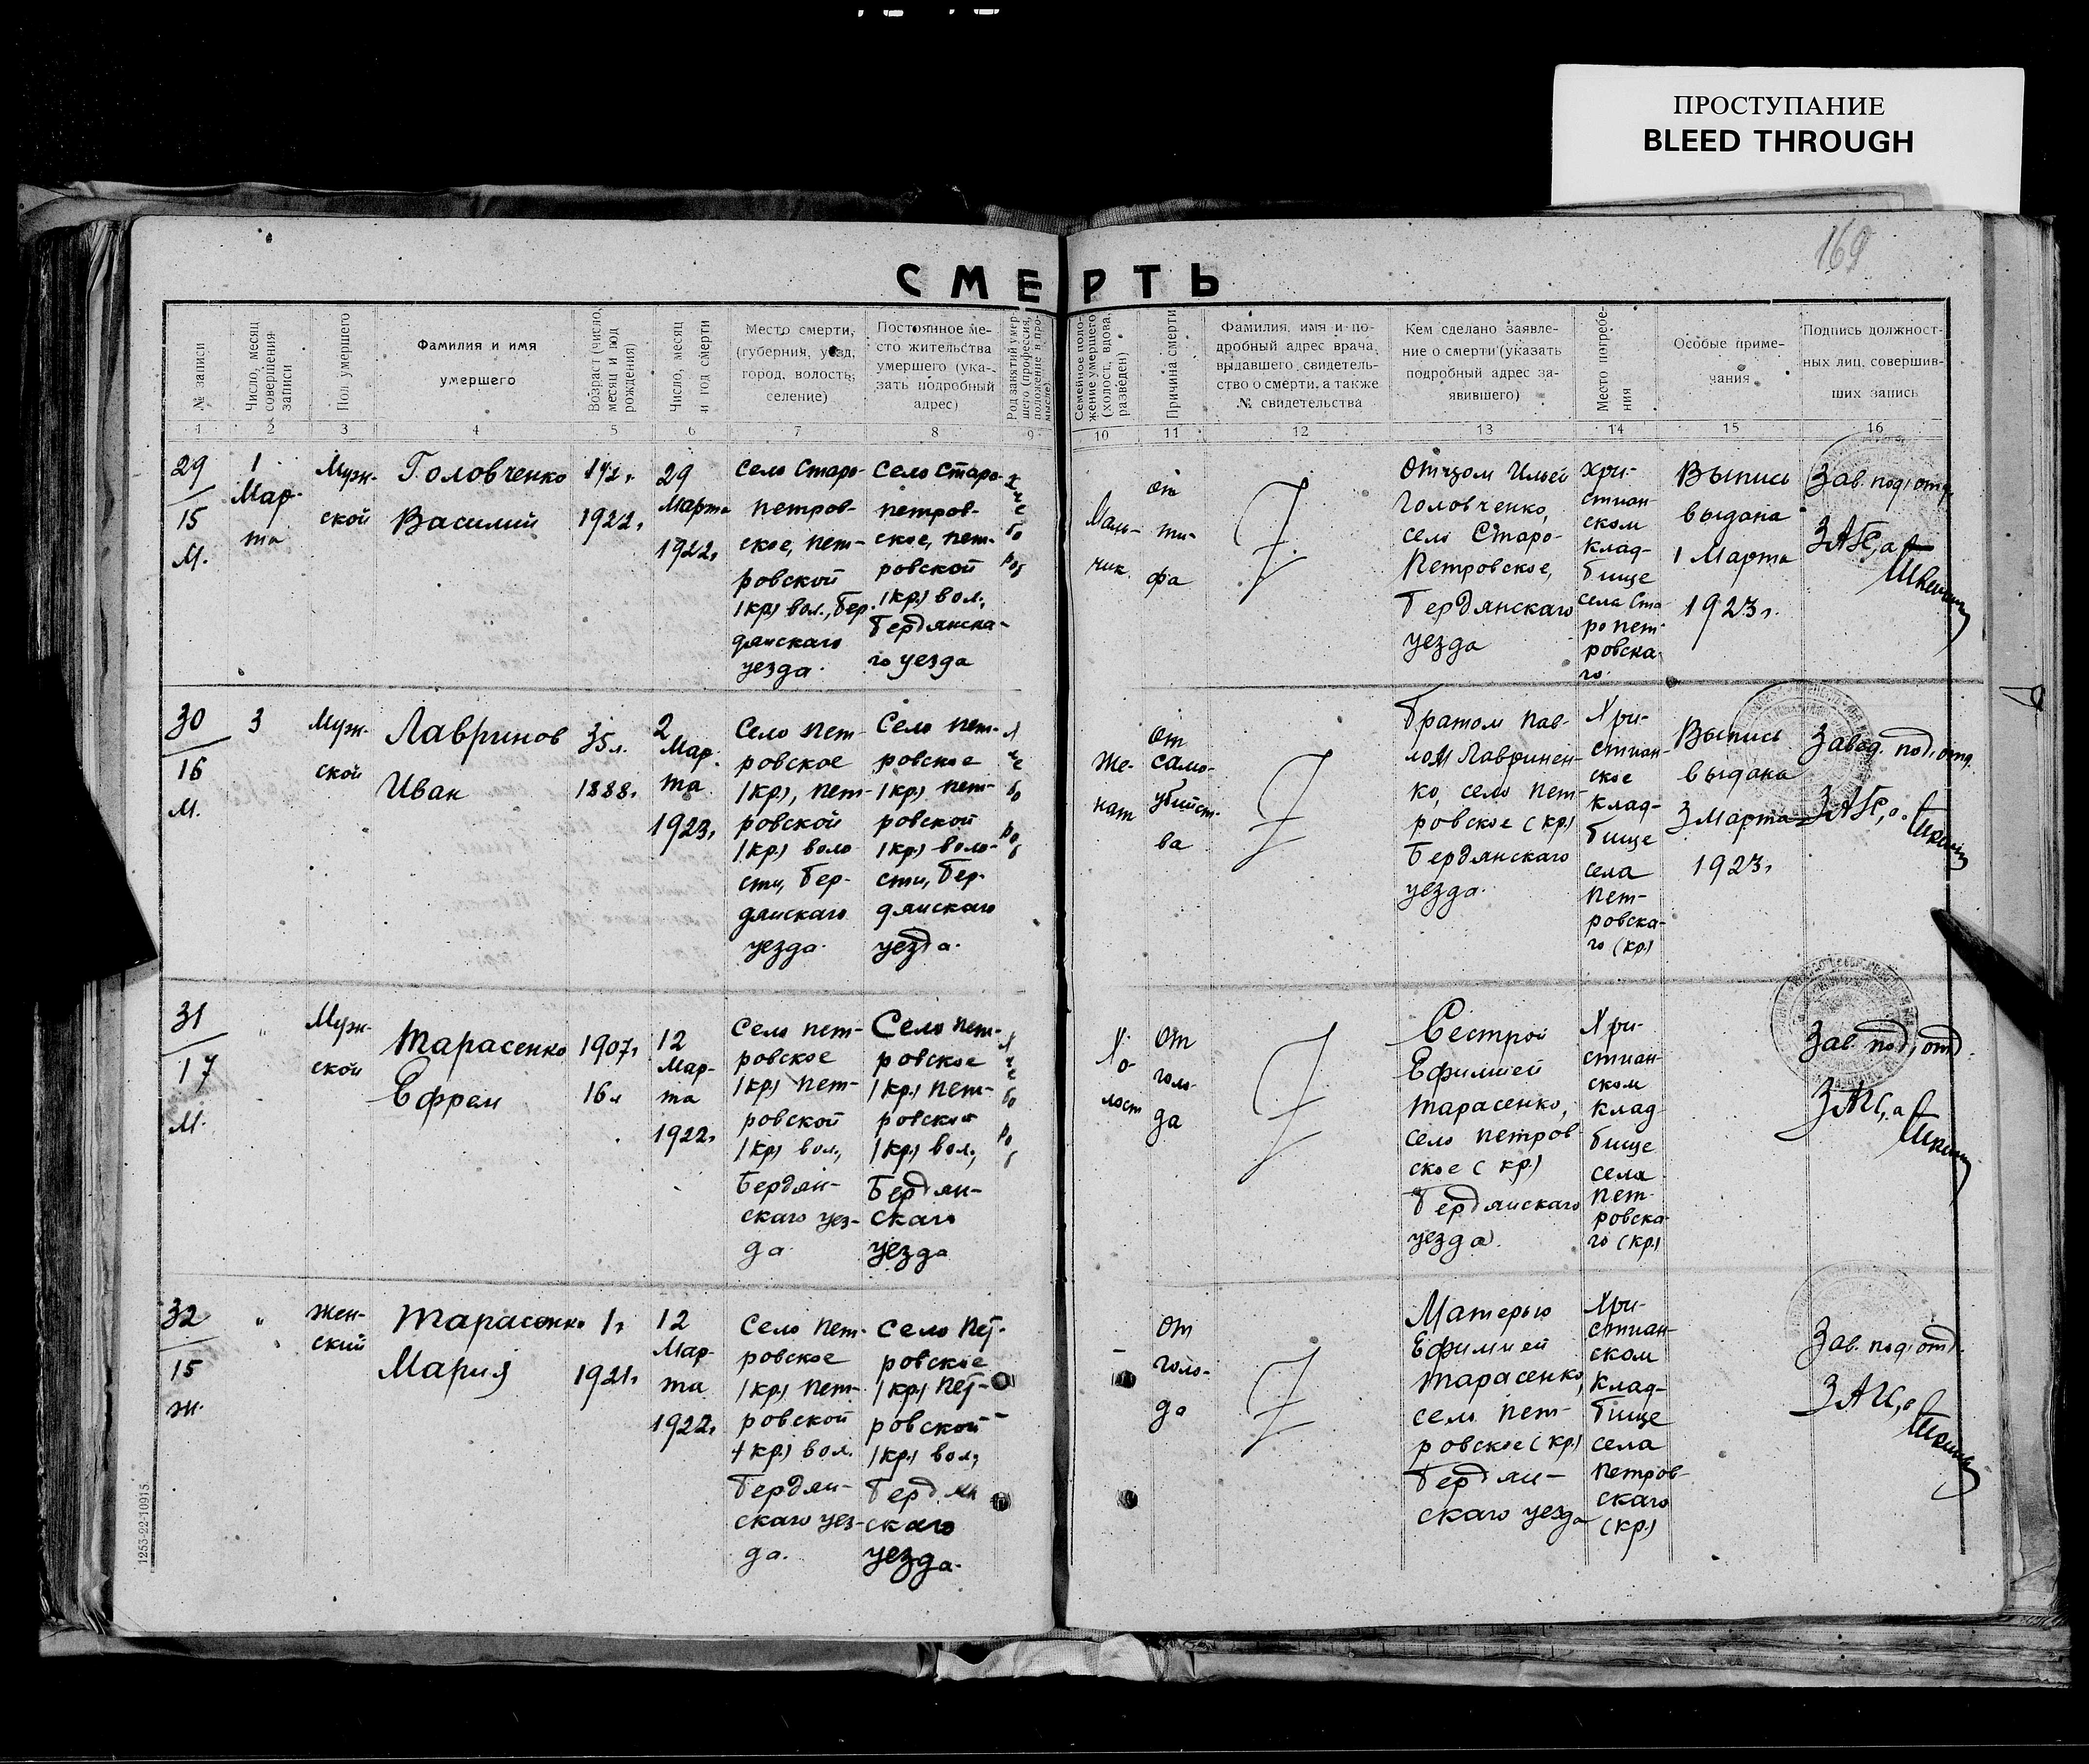 ПРОСТУПАНИЕ
BLEED THROUGH
169
СМЕРТЬ
№ записи
Число, месяц
совершения
записи
Пол умершего
Фамилия и имя
умершего
Возраст (число,
месяц и год
рождения)
Число, месяц
и год смерти
Место смерти,
(губерния, уезд,
город, волость,
селение)
Постоянное ме-
сто жительства
умершего (ука-
зать подробный
адрес)
Род занятий умер-
шего (профессия,
положение в про-
мысле)
Семейное поло-
жение умершего
(холост, вдова,
разведен)
Причина смерти
Фамилия, имя и по-
дробный адрес врача,
выдавшего свидетель-
ство о смерти, а также
№ свидетельства
Кем сделано заявле-
ние о смерти (указать
подробный адрес за-
явившего)
Место погребе-
ния
Особые приме-
чания
Подпись должност-
ных лиц, совершив-
ших запись
1 2 3 4 5 6 7 8 9 10 11 12 13 14 15 16
29
15
М.
1
Мар-
та
Муж-
ской
Головченко
Василий
1922г.
29
Марта
1922г.
Село Старо-
петров-
ское, пет-
ровской
(кр) вол., Бер-
дянскаго
уезда.
Село Старо-
петров-
ское, пет-
ровской
(кр.) вол.,
Бердянска-
го уезда
Хле
бо
роб
Маль-
чик.
От
ти-
фа
Отцом Ильей
Головченко,
село Старо-
Петровское,
Бердянскаго
уезда
Хри-
стиан-
ском
клад-
бище
села Ста
ропет-
ровска-
го.
Выпись
выдана
1 Марта
1923г.
Зав. под. отд.
ЗАГС,а
30
16
М.
3
Муж-
ской
Лавринов
Иван
35л.
1888г.
2
Мар-
та
1923г.
Село Пет-
ровское
(кр), пет-
ровской
(кр.) воло
сти, Бер-
дянскаго
уезда.
Село пет-
ровское
(кр) пет-
ровской
(кр.) воло-
сти, Бер-
дянскаго
уезда.
Хле
бо
роб
Же-
нат
От
само-
убийст-
ва
Братом Пав-
лом Лавринен-
ко, село Пет-
ровское (кр.)
Бердянскаго
уезда.
Хри-
стиан-
ское
клад-
бище
села
Пет-
ровска-
го (кр.)
Выпись
выдана
3 Марта
1923г.
Завед. под. отд.
ЗАГС,а
31
17
М.
"
Муж-
ской
Тарасенко
Ефрем
1907г.
16л
12
Мар-
та
1922г.
Село пет-
ровское
(кр) пет-
ровской
(кр) вол.,
Бердян-
скаго уез-
да.
Село пет-
ровское
(кр.) пет-
ровской
(кр.) вол.,
Бердян-
скаго
уезда
Хле
бо
роб
Хо-
лост
От
голо-
да
Сестрой
Ефимией
Тарасенко,
село петров
ское (кр.)
Бердянскаго
уезда.
Хри-
стиан-
ском
клад-
бище
села
Пет-
ровска-
го (кр.)
Зав. под. отд.
ЗАГС,а
32
15
ж.
"
Жен-
ский
Тарасенко
Мария
1г
1921г.
12
Мар-
та
1922г.
Село Пет-
ровское
(кр.) пет-
ровской
(кр.) вол.
Бердян-
скаго уез-
да.
Село Пет-
ровское
(кр.) Пет-
ровской
(кр.) вол.,
Бердян
скаго
уезда.
От
голо-
да
Матерью
Ефимией
Тарасенко,
село Пет-
ровское (кр.)
Бердян-
скаго уезда
Хри-
стиан-
ском
клад-
бище
села
Петров-
скаго
(кр.)
Зав. под. отд.
ЗАГС,а
1253-22-10915